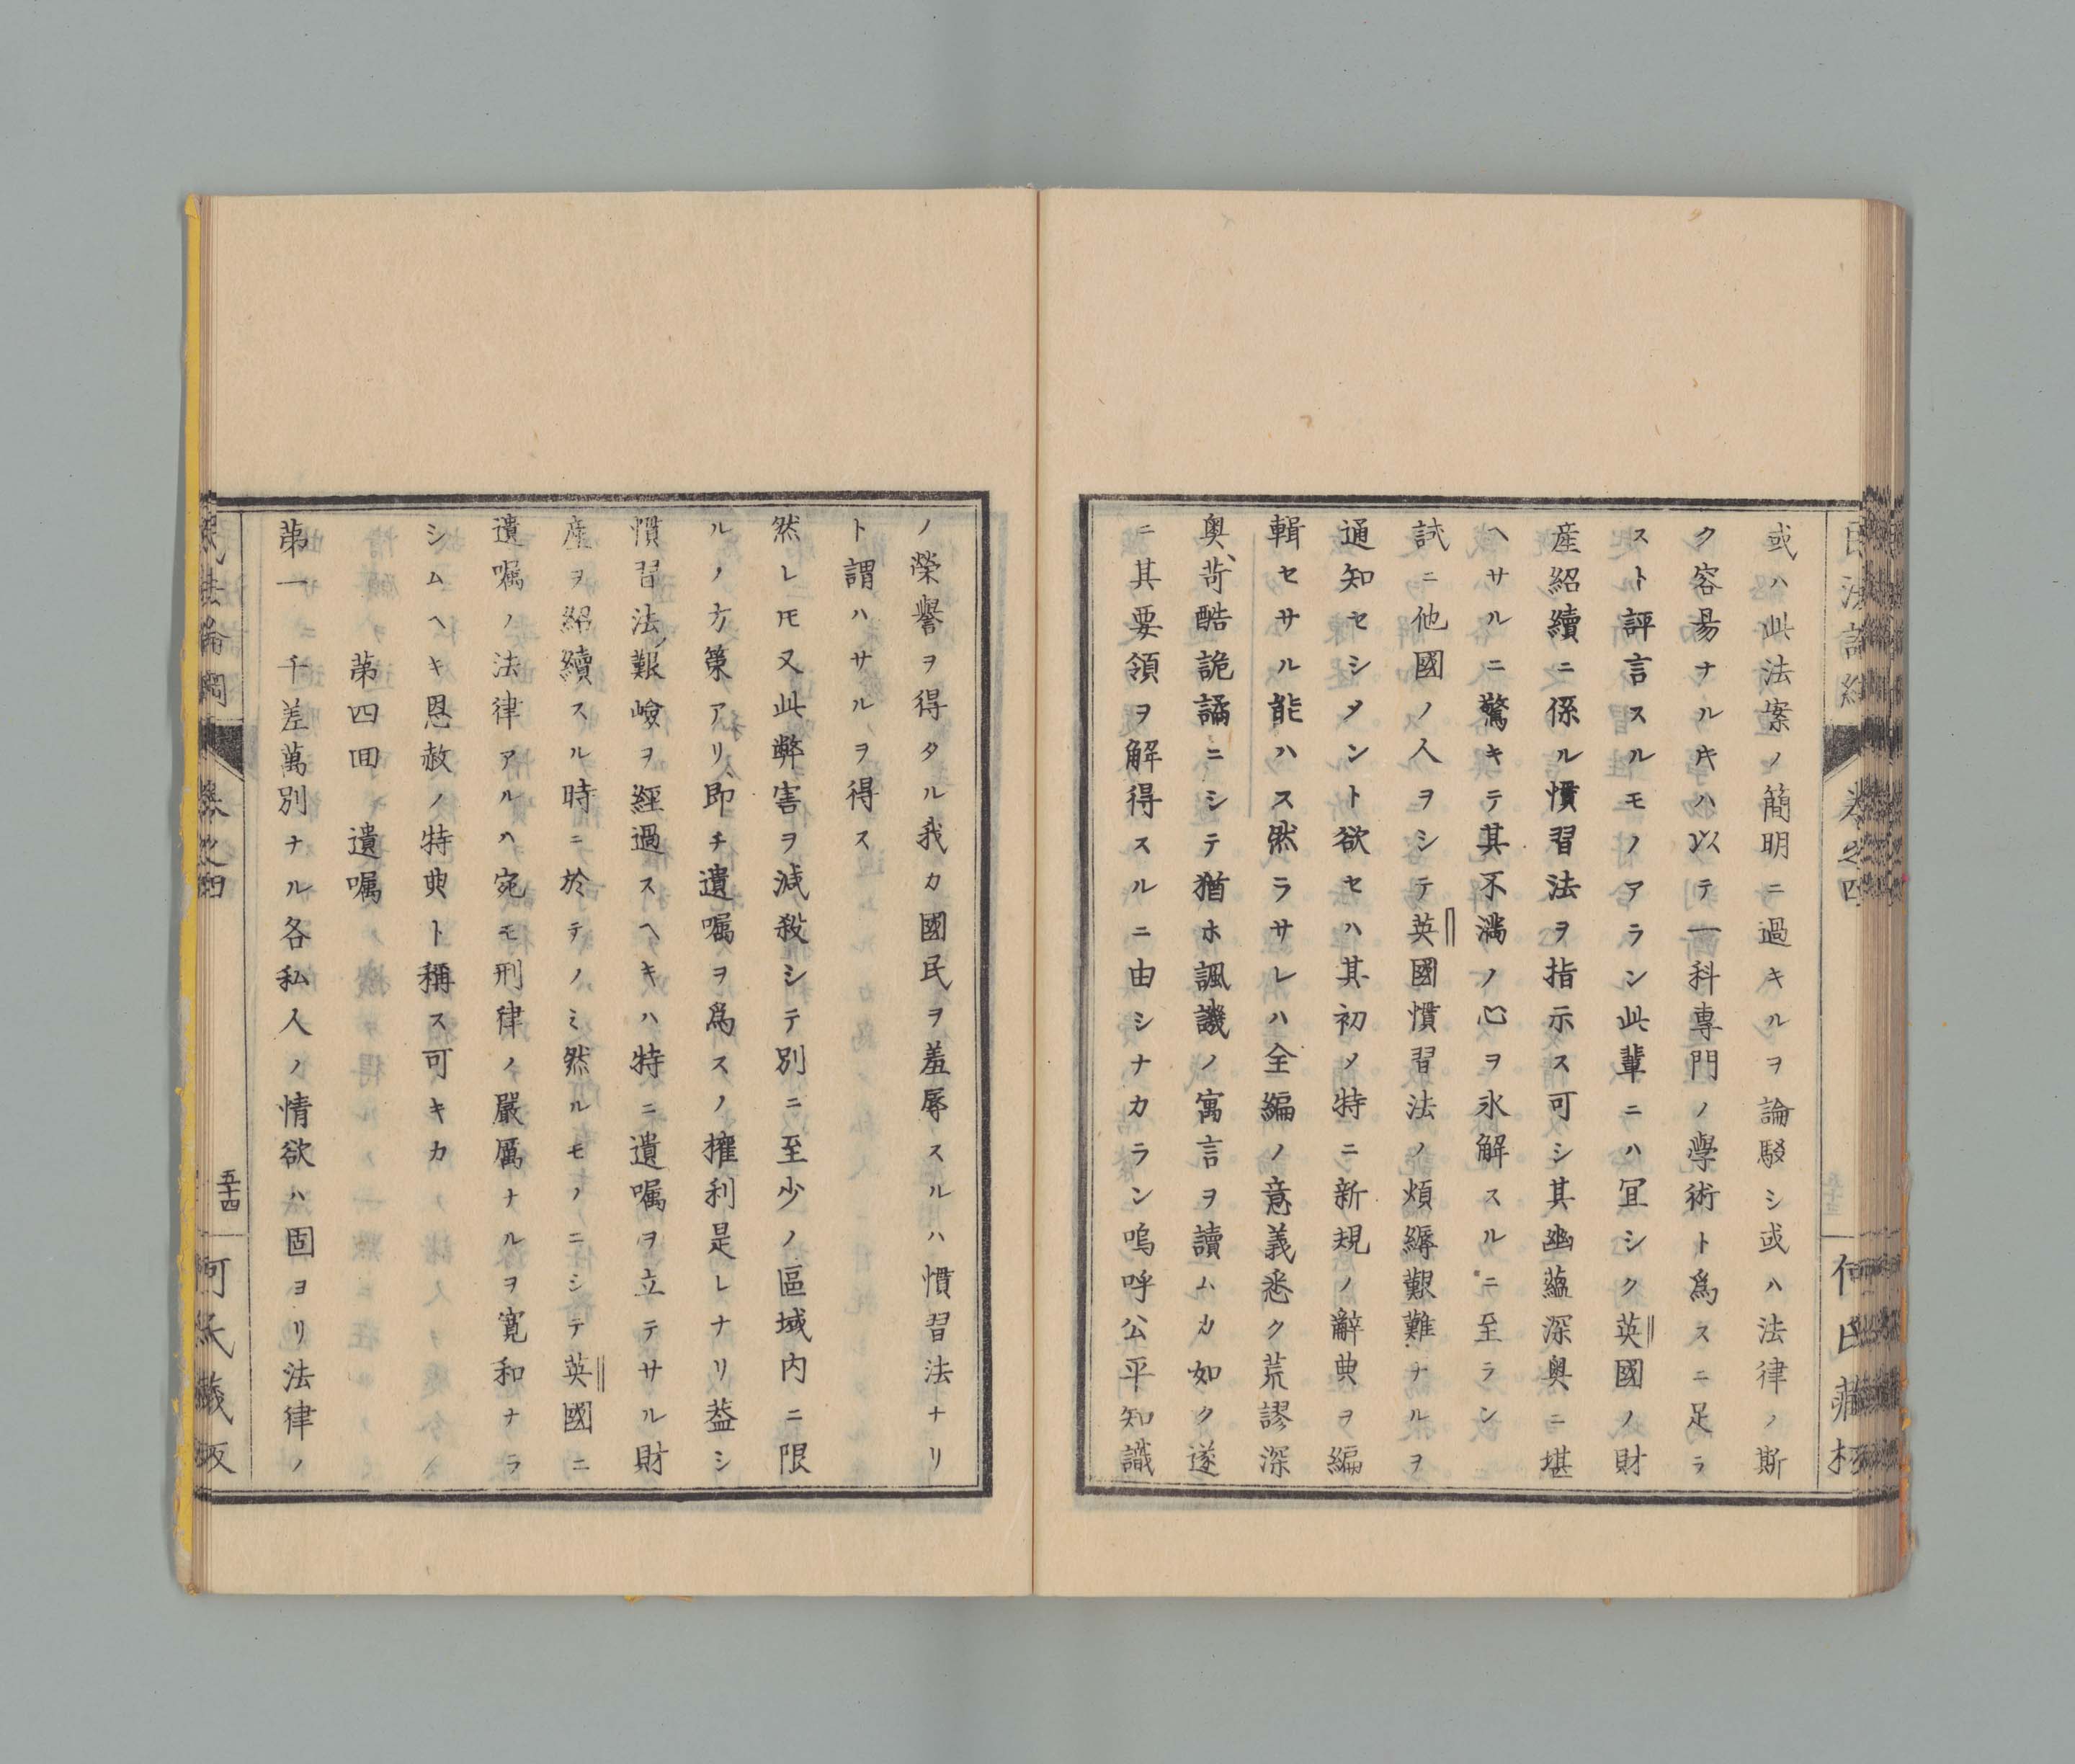 或ハ此法案ノ簡明ニ過キルヲ論駁シ或ハ法律ノ斯
ク容易ナルキハ以テ一科專門ノ學術ト爲スニ足ラ
スト評言スルモノアラン此輩ニハ冝シク英國ノ財
産紹續ニ係ル慣習法ヲ指示ス可シ其幽蘊深奥ニ堪
ヘサルニ驚キテ其不満ノ心ヲ氷解スルニ至ラン
試ニ他國ノ人ヲシテ英國慣習法ノ煩縟艱難ナルヲ
通知セシメント欲セハ其初メ特ニ新規ノ辭典ヲ編
輯セサル能ハス然ラサレハ全編ノ意義悉ク荒謬深
奥、苛酷詭譎ニシテ猶ホ諷譏ノ寓言ヲ讀ムカ如ク遂
ニ其要領ヲ解得スルニ由シナカラン嗚呼公平知識
ノ榮譽ヲ得タル我カ國民ヲ羞辱スルハ慣習法ナリ
ト謂ハサルヲ得ス
然レ𪜈又此弊害ヲ減殺シテ別ニ至少ノ區域内ニ限
ルノ方策アリ即チ遺嘱ヲ爲スノ擁利是レナリ葢シ
慣習法ノ艱嶮ヲ經過スヘキハ特ニ遺嘱ヲ立テサル財
産ヲ紹續スル時ニ於テノミ然ルモノニシテ英國ニ
遺嘱ノ法律アルハ宛モ刑律ノ嚴厲ナルヲ寛和ナラ
シムヘキ恩赦ノ特典ト稱ス可キカ
第四回　遺嘱
第一　千差萬別ナル各私人ノ情欲ハ固ヨリ法律ノ
民法論綱　卷之四　五十四　何氏藏板